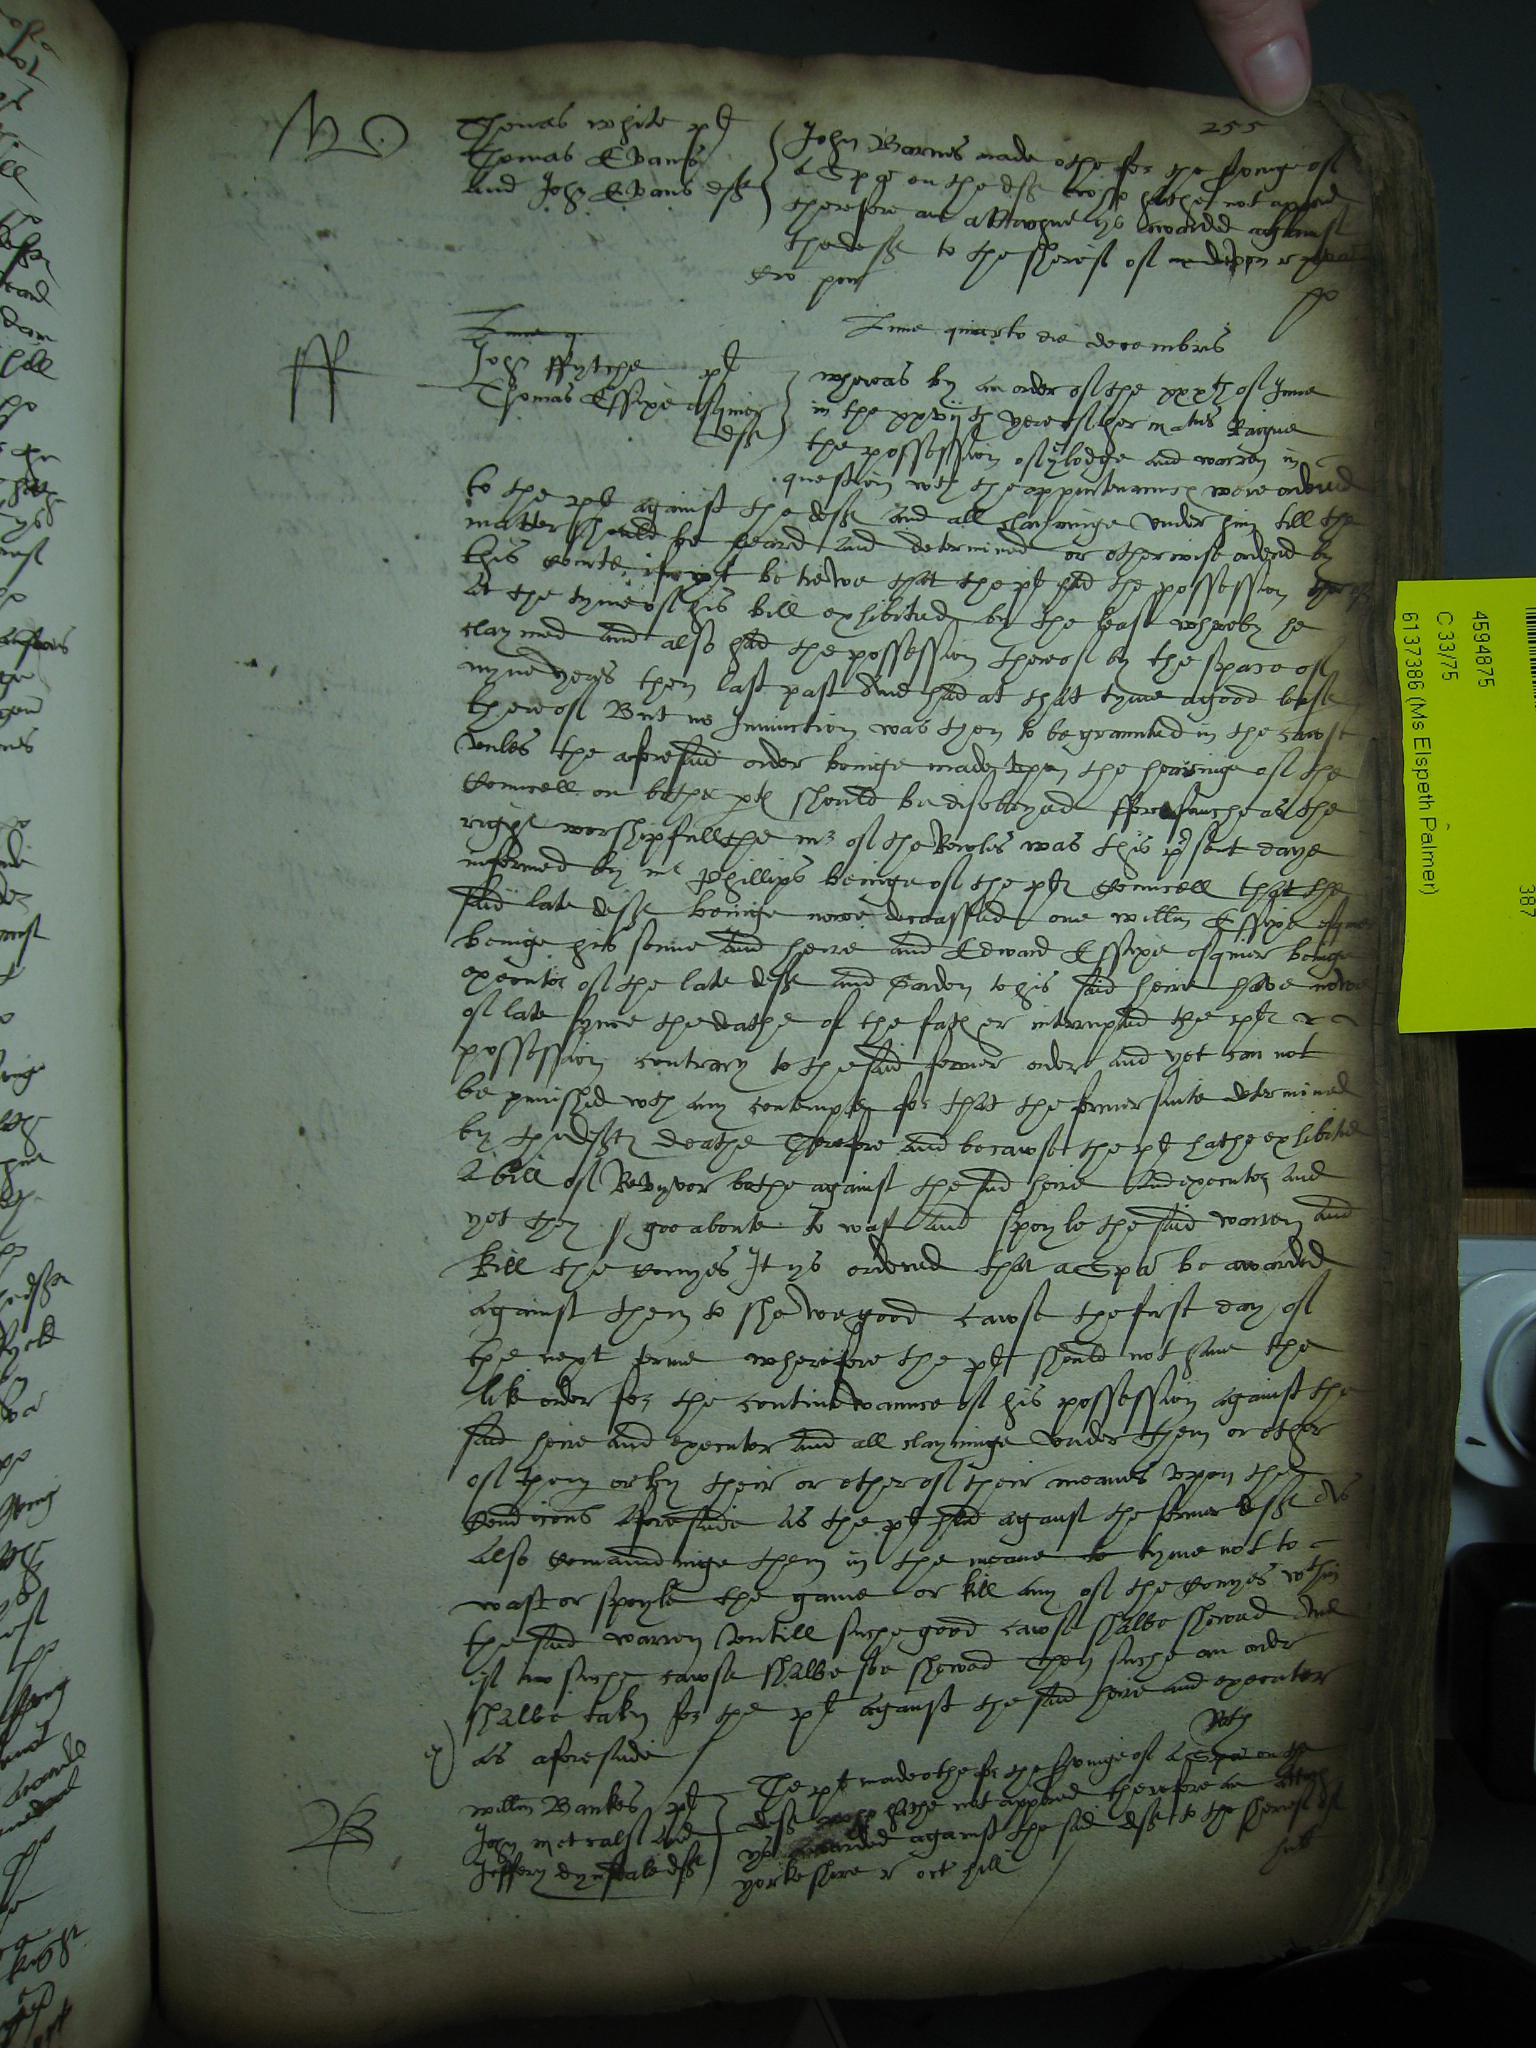 255
Thomas White pl
Thomas Evans
and John Evans deff
John Barnes made othe for the
on the deff hathe not apered
therefore an is awarded against
the deff to the sherif of
John ffytche pl
Thomas Essexe esquier
deff
Lune quarto die decembris
whereas by an order of the xxxth of June
in the xxvijth yere of her mats Raigne
the possession of ye lodge and warren in
question wth the appurtenaunces were ordered
to the pl against the deff and all clayminge under him till the
matter should be heard and determined or otherwise ordered by
this Courte if it be trewe that the pl had the possession
at the tyme of his bill exhibited by the lease whereby he
claymed and also had the possession thereof by the space of
nyne yeres then last past and had at that tyme a good lease
thereof But no Iniunction was then to be graunted in the cawse
unles the aforesaid order beinge made upon the hearinge of the
Councell on bothe ptes should be disobeyed fforasmuche as the
right worshipfull the mr of the Rowles was this present daye
informed by mr Phillips beinge of the pl Councell that the
said late deff beinge nowe deceassed one willm Essexe esquier
beinge his sonne and heire and Edward Essexe esquier beinge
executor of the late deff and garden to his said heire have nowe
of late synce the deathe of the father interrupted the pl
possession contrary to the said former order and yet can not
be punished wth any contempte for that the former sute determined
by the deff deathe Therefore and becawse the pl hathe exhibited
a bill of Revyvor bothe against the said heire and executor and
yet they goo aboute to wast and spoyle the said warren and
kill the Conyes It ys ordered that a Spa be awarded
against them to shewe good cawse the first day of
the next terme wherefore the pl should not have the
like order for the continewaunce of his possession against the
said heire and executor and all clayminge under them or ether
of them or by their or ether of their meanes upon the
Condicions aforesaide as the pl had against the former deff As
also Comaundinge them in the meane to tyme not to
wast or spoyle the game or kill any of the Conyes wthin
the said warren untill suche good cawse shalbe shewed And
if no suche cawse shalbe soe shewed then suche an order
shalbe taken for the pl against the said heire and executor
as aforesaide
willm Bankes pl
John metcalf and
Jeffery deff
The pl made othe for the of a Spa on the
deff hathe not appered therefore an
ys awarded against the said deff to the sherief of
yorkeshire r oct hill
4594875
C 33/75
6137386 (Ms Elspeth Palmer)
387